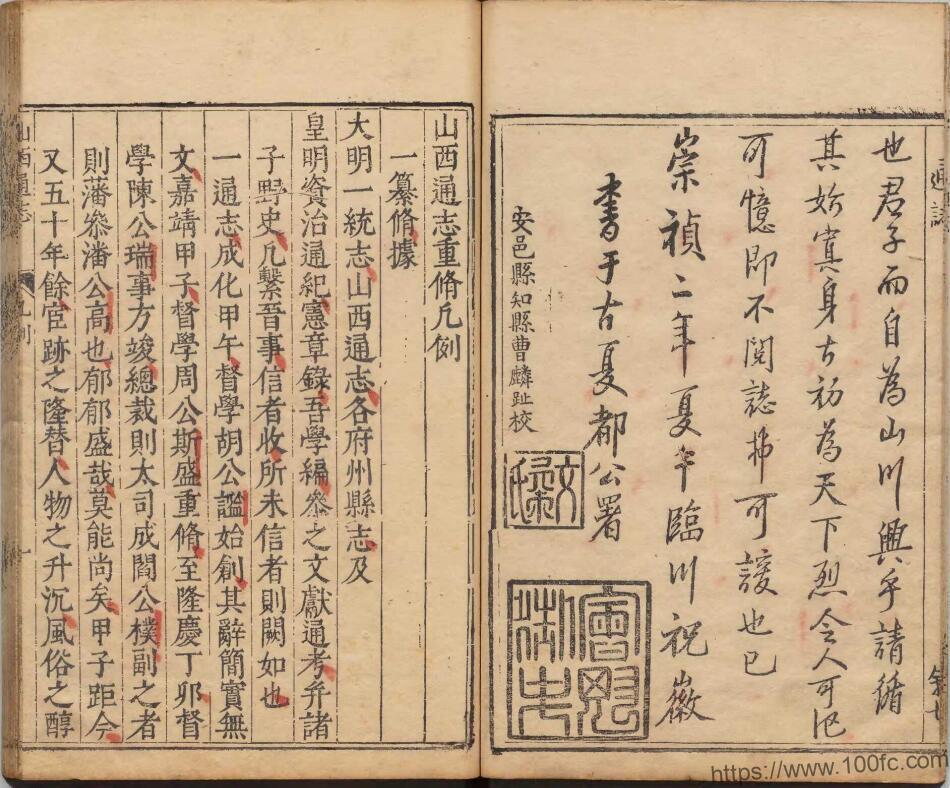 也君子而自為山川興乎請循
其妳寘身古初為天下烈令人可
可憶即不閱誌拂可諼也已
崇禎二年夏午臨川祝徽
書于古夏都公署
安邑縣知縣曹麟趾校
山西通志重脩凡例
一纂脩據
大明一統志山西通志各府州縣志及
皇明資治通紀憲章錄吾學編參之文獻通考并諸
子野史凡繫吾事信者收所未信者則闕如也
一通志成化甲午督學胡公謐始創其辭簡實無
文嘉靖甲子督學周公斯盛重脩至隆慶丁卯督
學陳公瑞事方竣總裁則太司成閻公樸副之者
則藩參潘公高也郁郁盛哉莫能尚矣甲子距今
又五十年餘宦跡之隆替人物之升沉風俗之醇
山西通志
凡例
一
https://www.100fc.com